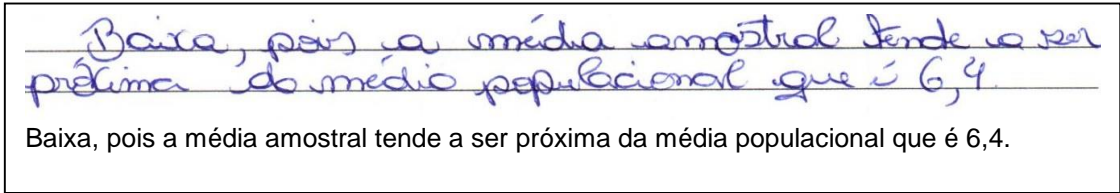 Baixa, pois a média amostral tende a ser
próxima da média populacional que é 6,4.
Baixa, pois a média amostral tende a ser próxima da média populacional que é 6,4.